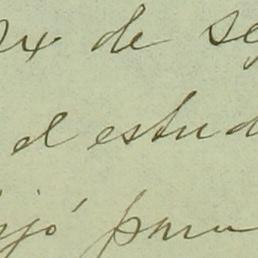 de se
el estud
jó para